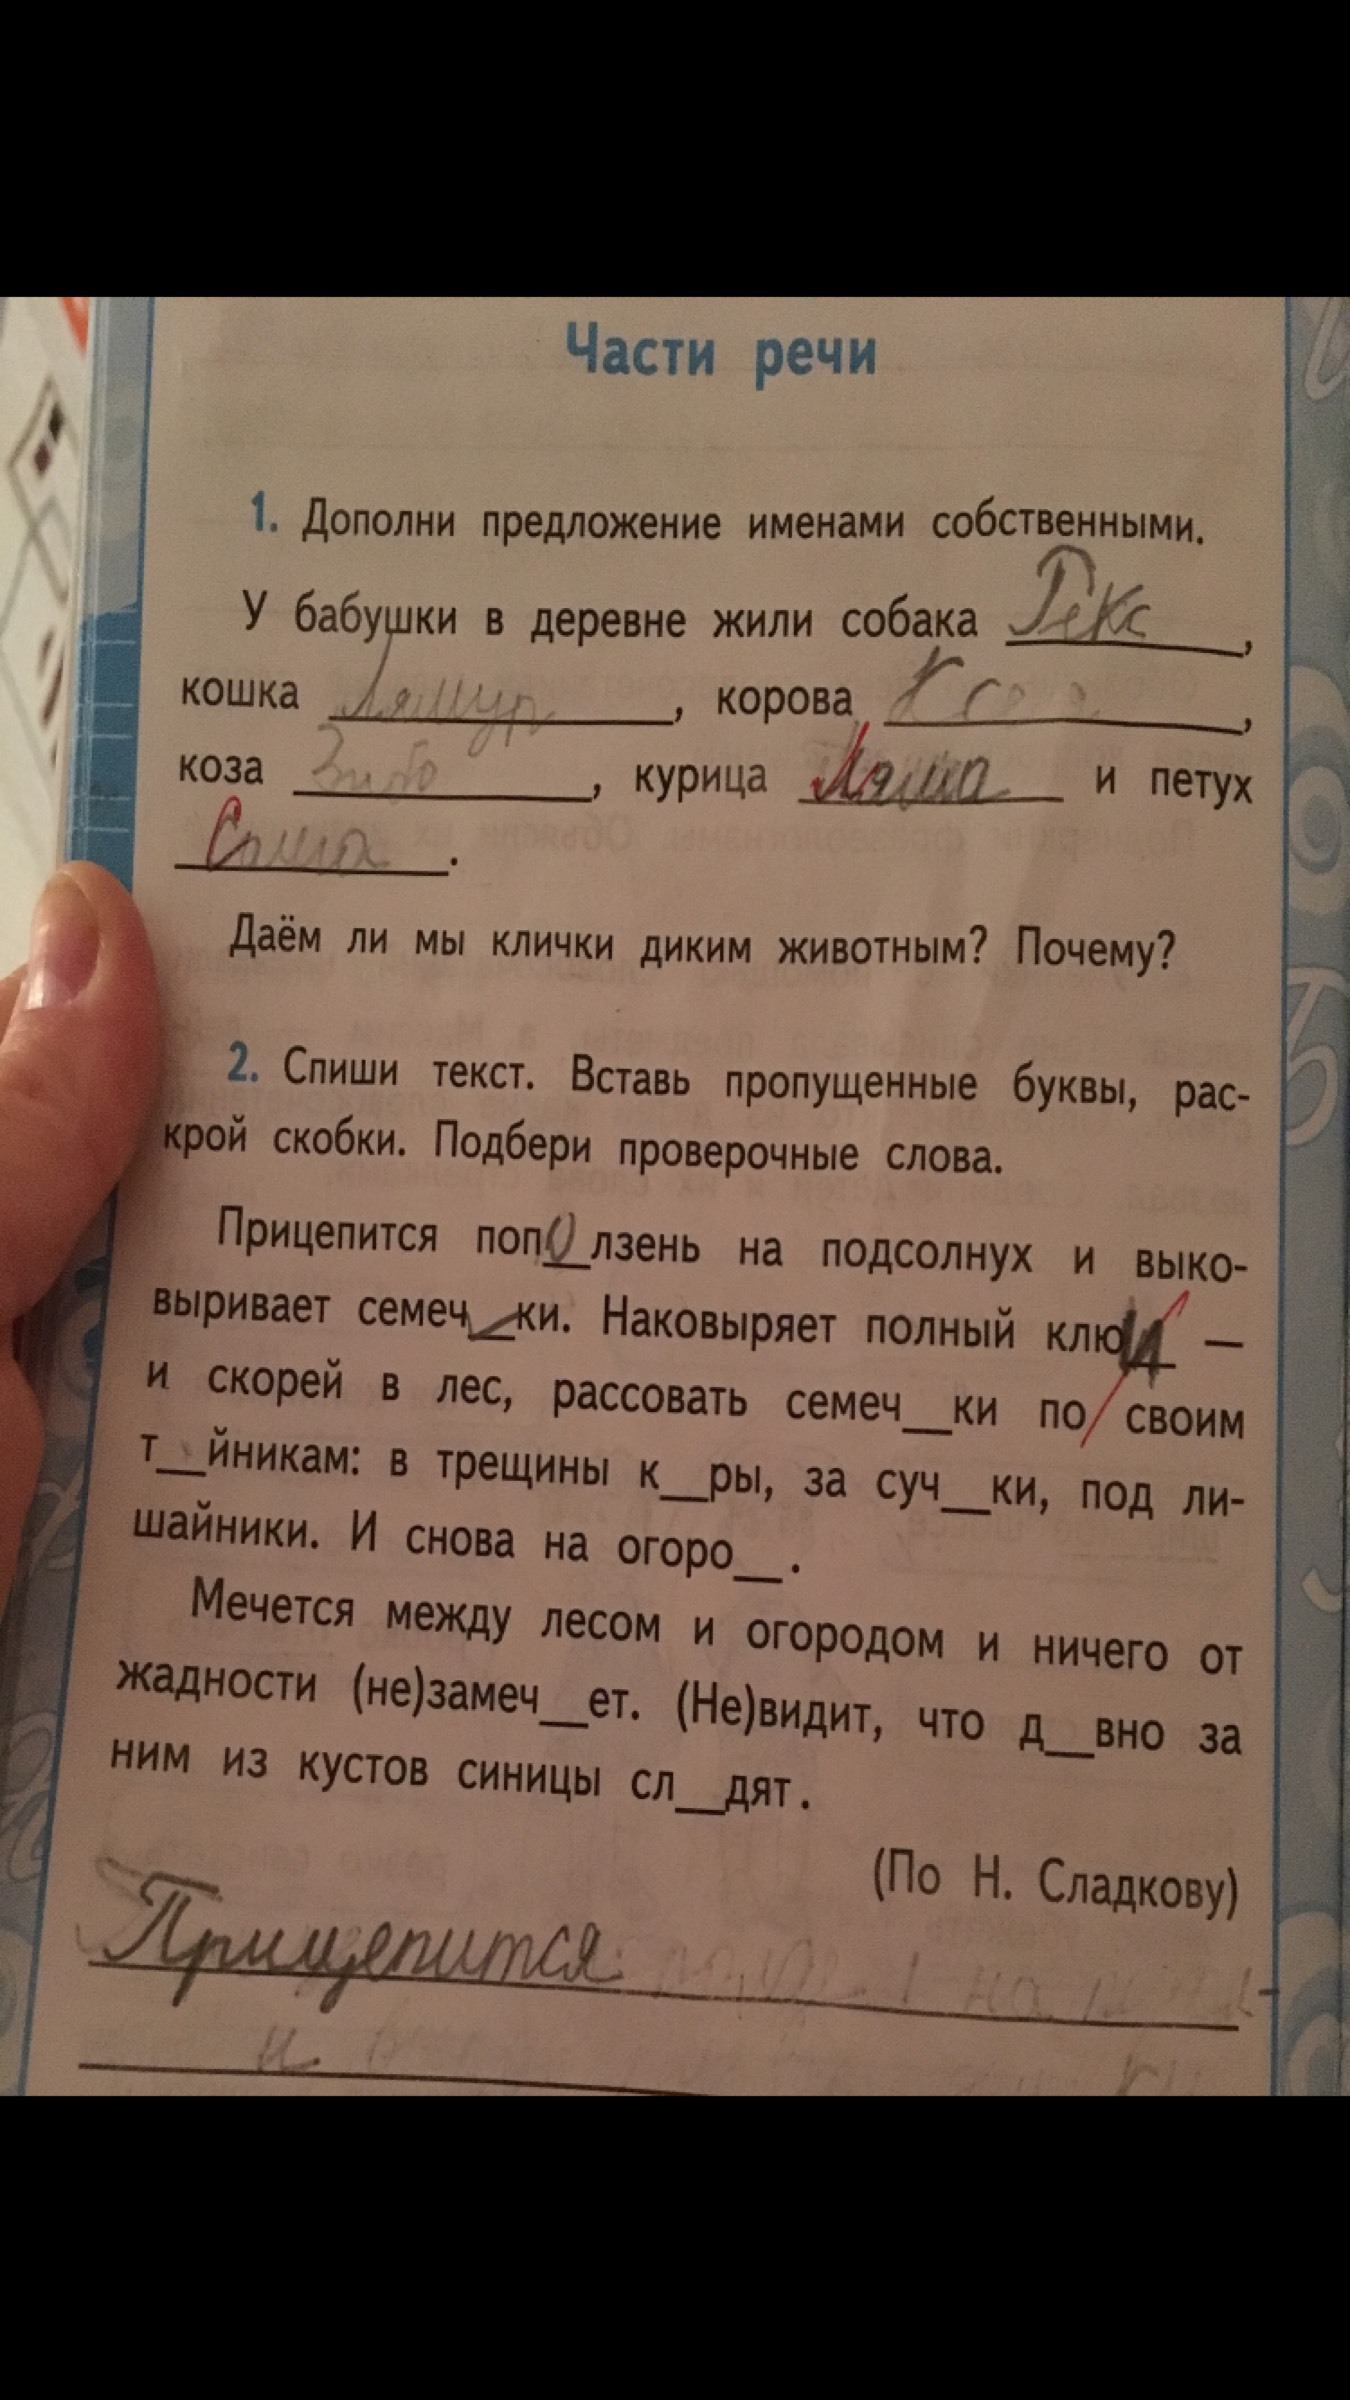 Части речи
1. Дополни предложение именами собственными.
У бабушки в деревне жили собака Рекс,
кошка Ляммур, корова
коза, курица Ляша и петух
Саша.
Даём ли мы клички диким животным? Почему?
2. Спиши текст. Вставь пропущенные буквы, рас-
крой скобки. Подбери проверочные слова.
Прицепится поп о лзень на подсолнух и выко-
выривает семеч__ки. Наковыряет полный клю —
и скорей в лес, рассовать семеч__ки по своим
т__йникам: в трещины к__ры, за суч__ки, под ли-
шайники. И снова на огоро__.
Мечется между лесом и огородом и ничего от
жадности (не)замеч__ет. (Не)видит, что д__вно за
ним из кустов синицы сл__дят.
(По Н. Сладкову)
Прицепится на
и